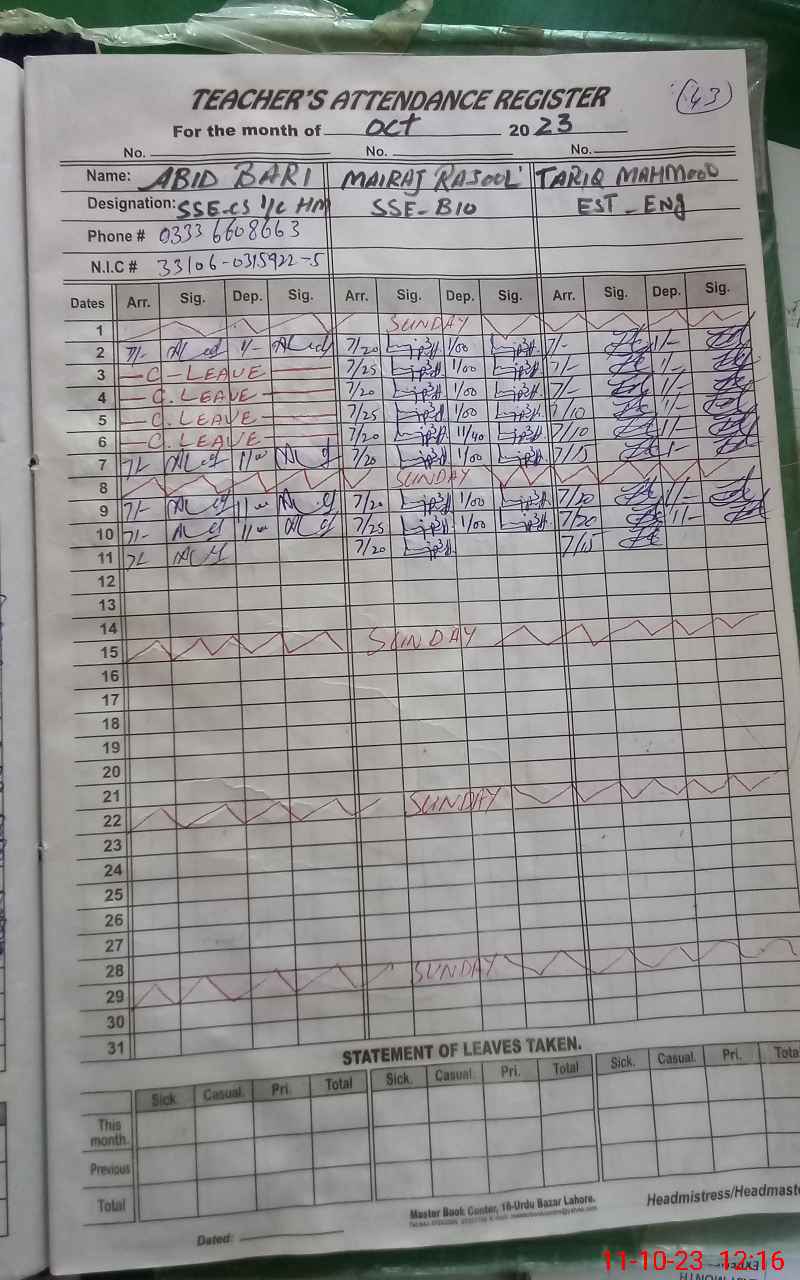 TEACHER'S ATTENDANCE REGISTER (43)
For the month of OCT 2023
No. No. No.
Name: ABID BARI MAIRAJ RASOOL TARIQ MAHMOOD
Designation: SSE-CS I/C HM SSE-BIO EST-ENG
Phone # 0333 6608663
N.I.C # 33106-0315922-5
Dates Arr. Sig. Dep. Sig. Arr. Sig. Dep. Sig. Arr. Sig. Dep. Sig.
1 SUNDAY
2 7/- 1/- 7/20 1/00 7/- 1/-
3 C-LEAVE 7/25 1/00 7/- 1/-
4 C.LEAVE 7/20 1/00 7/- 1/-
5 C.LEAVE 7/25 1/00 7/10 1/-
6 C.LEAVE 7/20 11/40 7/10 1/-
7 7/- 7/20 1/00 7/15 1-
8 SUNDAY
9 7/- 7/20 1/00 7/20 1/-
10 7/- 7/25 1/00 7/20 1/-
11 7/- 7/20 7/15
12
13
14
15 SUNDAY
16
17
18
19
20
21
22 SUNDAY
23
24
25
26
27
28
29 SUNDAY
30
31
STATEMENT OF LEAVES TAKEN.
Sick. Casual. Pri. Total Sick. Casual. Pri. Total Sick. Casual. Pri. Total
This month.
Previous
Total
Master Book Center, 16-Urdu Bazar Lahore.
Headmistress/Headmaste
Dated:
11-10-23 12:16